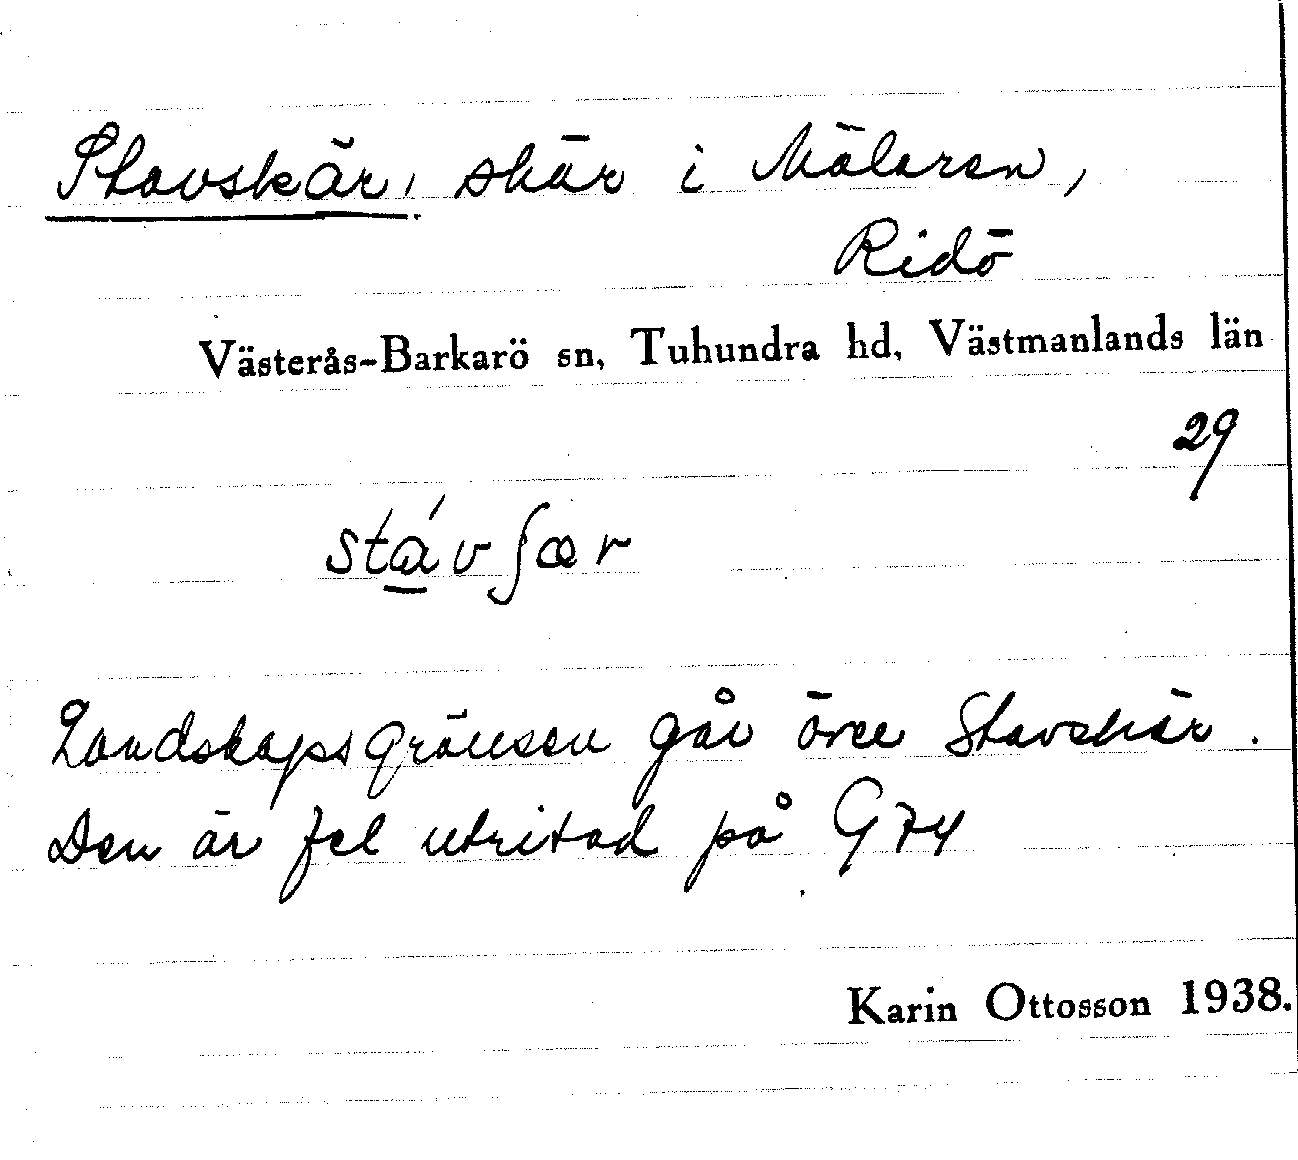 Stavskär, skär i Mälaren,
Ridö
Västerås-Barkarö sn, Tuhundra hd, Västmanlands län
29
stáv ʃær
Landskapsgränsen går över Stavskär.
Den är fel utritad på G 74
Karin Ottosson 1938.